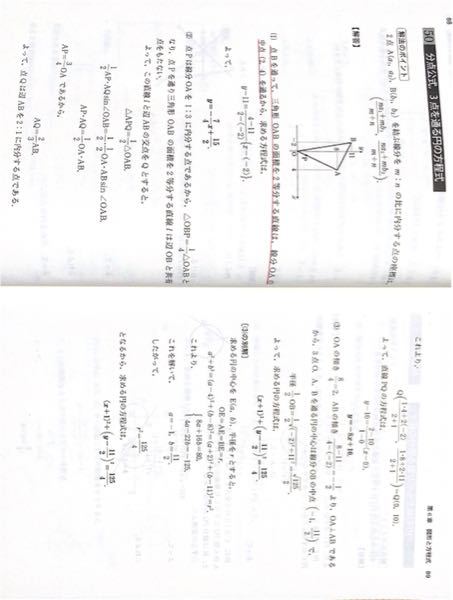 88
50 分点公式,3点を通る円の方程式
解法のポイント
2点 A(a₁, a₂), B(b₁, b₂) を結ぶ線分を m:n の比に内分する点の座標は,
(na₁+mb₁/m+n, na₂+mb₂/m+n)
【解答】
(1) 点Bを通って,三角形 OAB の面積を2等分する直線は,線分OAの
中点(2, 4)を通るから,求める方程式は,
y−11=(11−4)/(−2−2){x−(−2)}.
よって,
y=−7/4x+15/2.
(2) 点Pは線分OAを1:3に内分する点であるから,△OBP=1/4△OABと
なり,点Pを通り三角形 OAB の面積を2等分する直線 l は辺OBと共有
点をもたない.
よって,この直線 l と辺ABの交点をQとすると,
△APQ=1/2△OAB.
1/2AP・AQsin∠OAB=1/2・1/2OA・AB sin∠OAB.
AP・AQ=1/2OA・AB.
AP=3/4OAであるから,
AQ=2/3AB.
よって,点Qは辺ABを2:1に内分する点である.
第6章 図形と方程式 89
これより,
Q(1・4+2・(−2)/2+1, 1・8+2・11/2+1)=Q(0, 10).
よって,直線PQの方程式は,
y−10=(2−10)/(1−0)(x−0).
y=−8x+10.
(3) OAの傾き 8/4=2, ABの傾き (8−11)/(4−(−2))=−1/2 より,OA⊥ABである
から,3点O, A, Bを通る円の中心は線分OBの中点(−1, 11/2)で,
半径 1/2OB=1/2√((−2)²+11²)=√125/2.
よって,求める円の方程式は,
(x+1)²+(y−11/2)²=125/4.
【(3)の別解】
求める円の中心をE(a, b),半径をrとすると,
OE=AE=BE=r.
a²+b²=(a−4)²+(b−8)²=(a+2)²+(b−11)²=r².
これより,
{8a+16b=80,
4a−22b=−125.
これを解いて,
a=−1, b=11/2.
したがって,
r²=125/4
となるから,求める円の方程式は,
(x+1)²+(y−11/2)²=125/4.